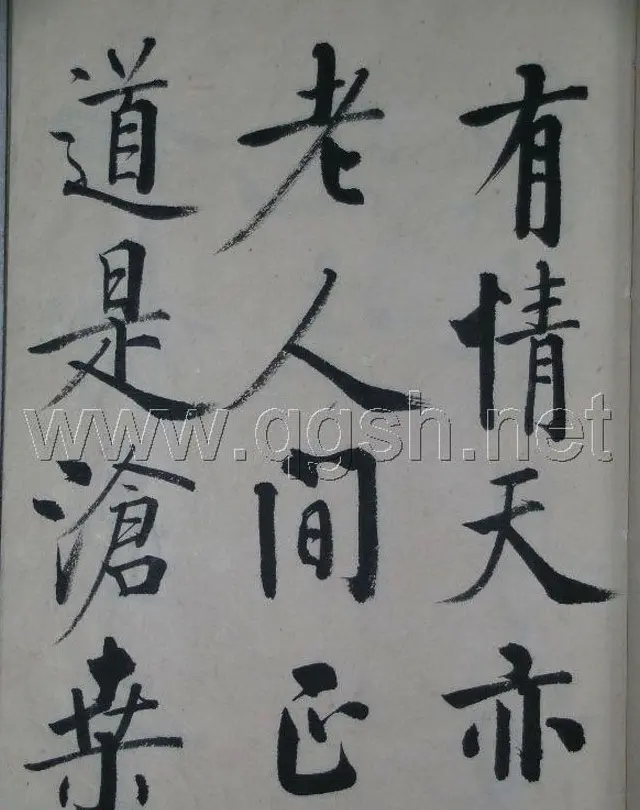 有情天亦
老人間正
道是滄桒
www.qgsh.net